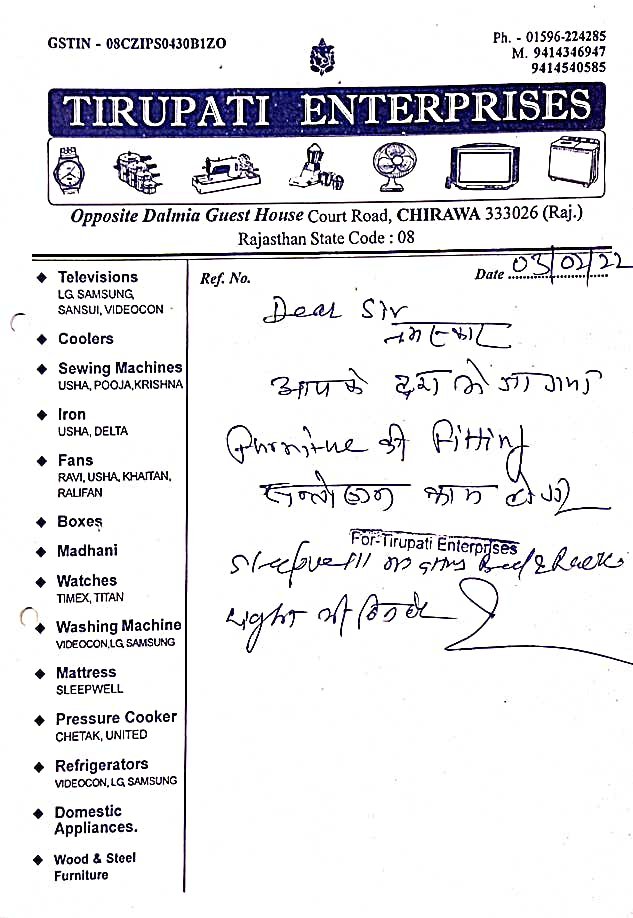 GSTIN - 08CZIPS0430B1ZO
Ph. - 01596-224285
M. 9414346947
9414540585
TIRUPATI ENTERPRISES
Opposite Dalmia Guest House Court Road, CHIRAWA 333026 (Raj.)
Rajasthan State Code : 08
Ref. No.
Date 03/02/22
◆ Televisions
LG, SAMSUNG,
SANSUI, VIDEOCON
◆ Coolers
◆ Sewing Machines
USHA, POOJA,KRISHNA
◆ Iron
USHA, DELTA
◆ Fans
RAVI, USHA, KHAITAN,
RALIFAN
◆ Boxes
◆ Madhani
◆ Watches
TIMEX, TITAN
◆ Washing Machine
VIDEOCON,LG, SAMSUNG
◆ Mattress
SLEEPWELL
◆ Pressure Cooker
CHETAK, UNITED
◆ Refrigerators
VIDEOCON, LG, SAMSUNG
◆ Domestic
Appliances.
◆ Wood & Steel
Furniture
Dear Sir
नमस्कार
आपके द्वारा
Furniture की Fitting
काम
For-Tirupati Enterprises